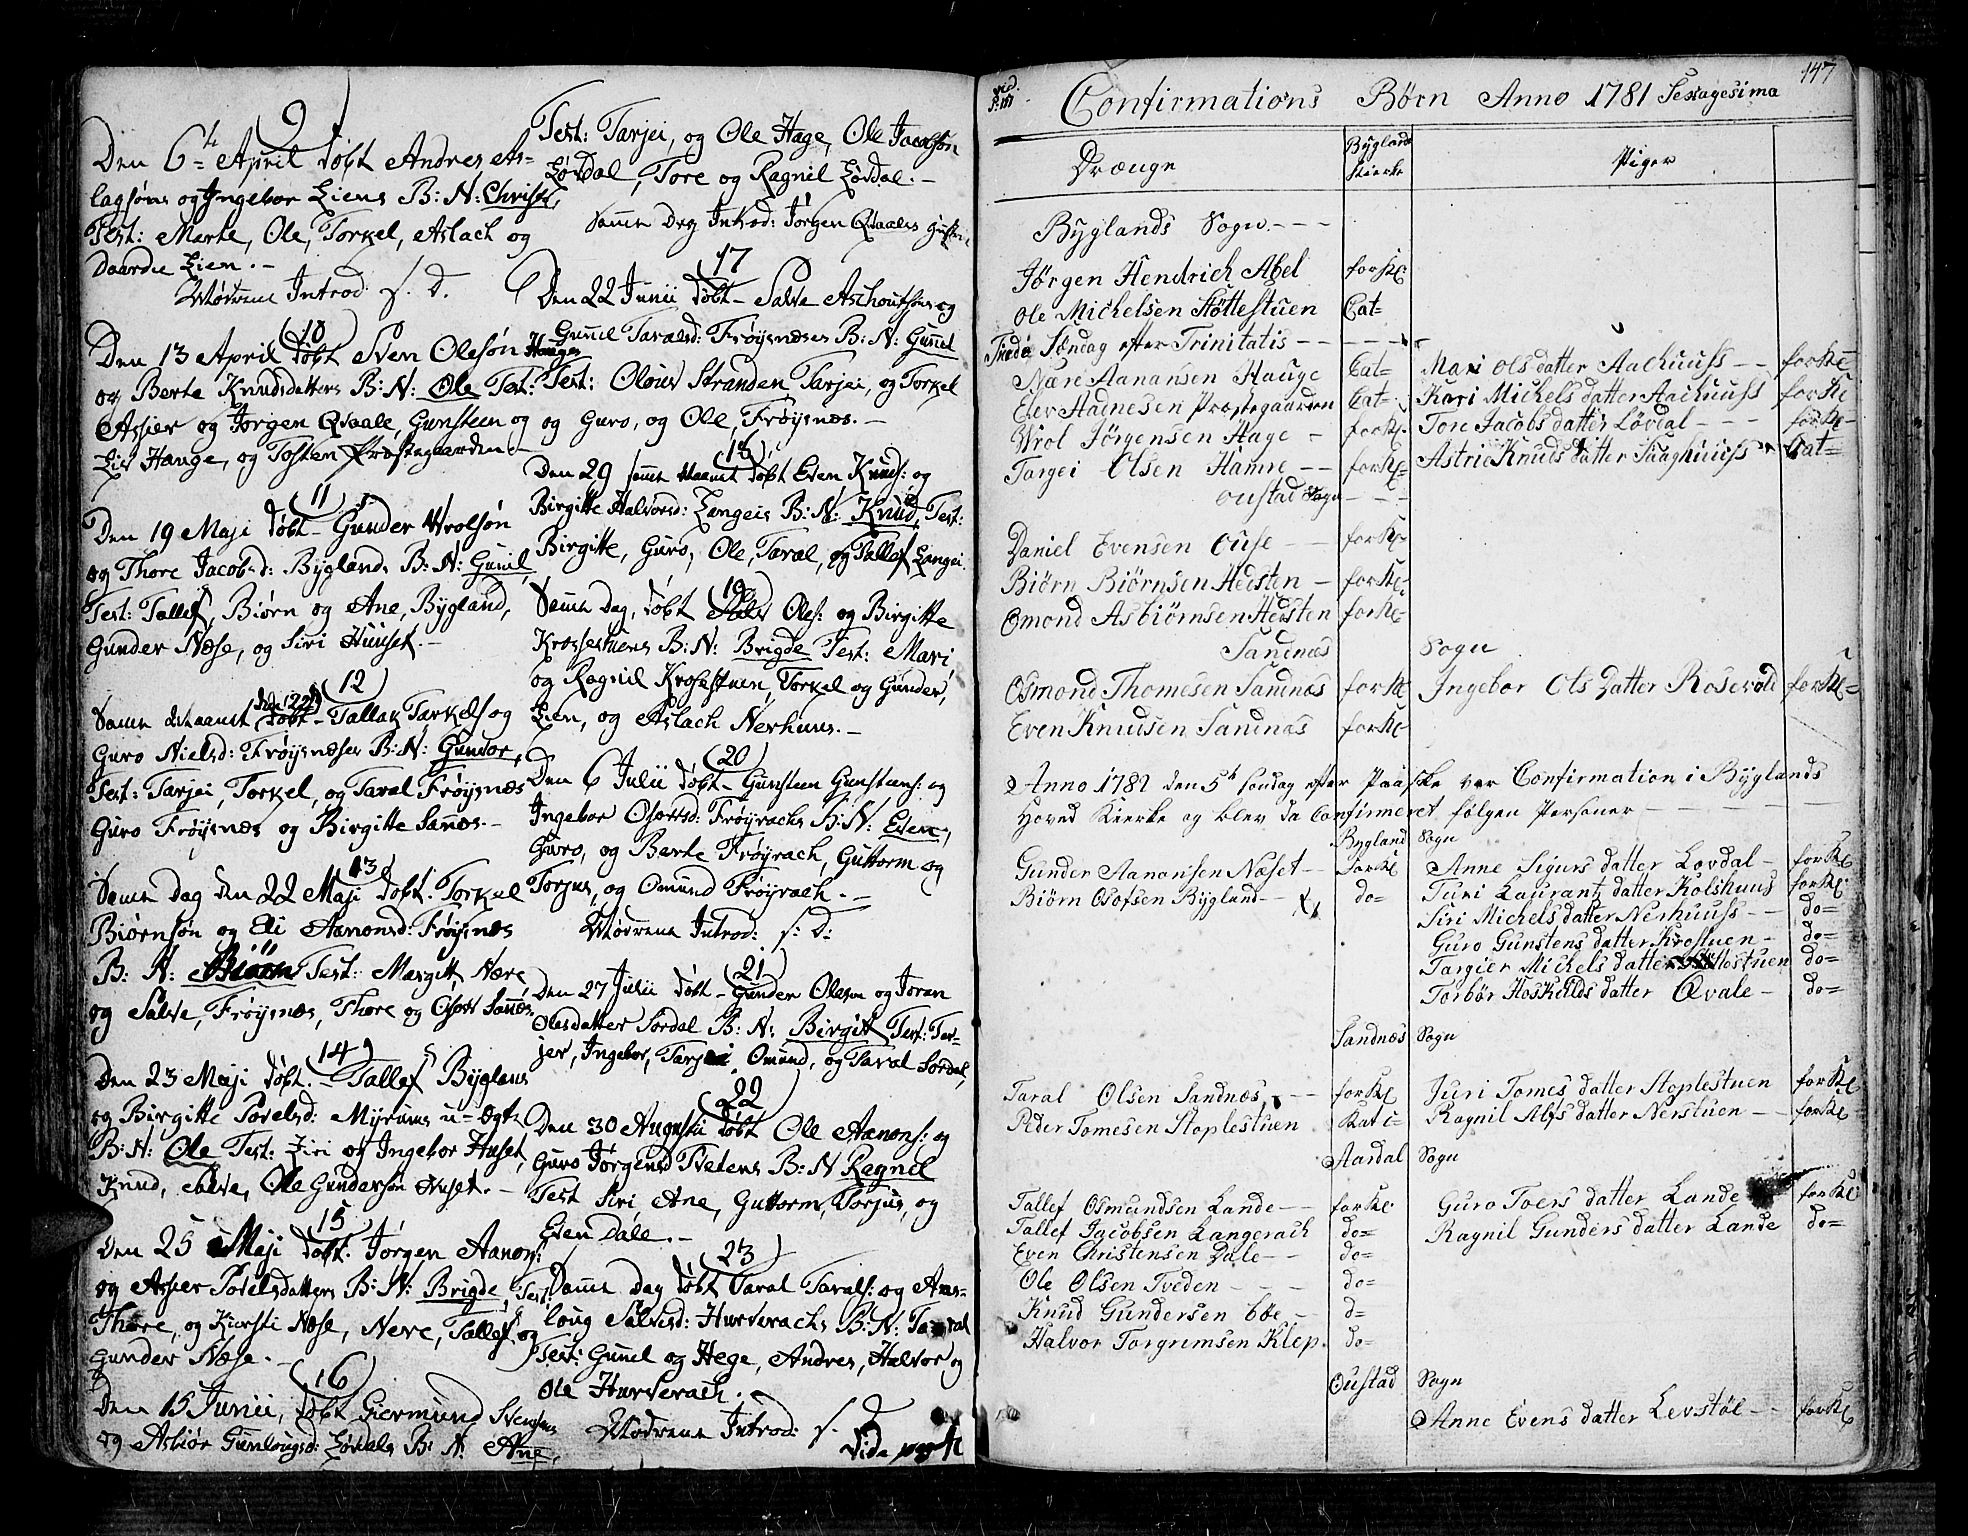 9
Den 6te April døbt Andres As-
lagsøns og Ingebor Liens B: N: Christi,
Test: Marte, Ole, Torkel, Aslach og
Daardie Lien. –
Mødrene Introd: s. D.
10
Den 13 April døbt Sven Olesøn Hauges
og Berte Knudsdatters B: N: Ole Test:
Assier og Jørgen Qvaale, Gunsteen og
Liv Hauge, og Tosten Præstegaarden –
11
Den 19 Maji døbt – Gunder Wrolsøn
og Thore Jacobsd: Byglands B: N: Gunil,
Test: Tallef, Biørn og Ane, Bygland,
Gunder Næse, og Siri Huuset. –
12
Samme Maanet den 22 døbt – Tallak Tarkels og
Guro Nielsd: Frøysnæses B: N: Gundor,
Test: Tarjei, Torkel, og Taral Frøysnæs
Guro Frøysnæs og Birgitte Sannes. –
13
Samme dag den 22 Maji døbt. Torkel
Biørnsøn og Eli Aanonsd: Frøysnæs
B: N: Biørn Test: Margit, Nære
og Salve, Frøysnæs, Thore og Osort Sannes,
14
Den 23 Maji døbt. – Tallef Byglans
og Birgitte Torelsd: Myrums u-ægte
B: N: Ole Test: Liri og Ingebor Huset,
Knud, Salve, Ole Gundersøn Huset. –
15
Den 25 Maji døbt. Jørgen Aanons:
og Assier Torelsdatters B: N: Brigde, Test:
Thore, og Kiersti Næse, Nere, Tallef, og
Gunder Næse. –
16
Den 15 Junii, døbt Giermund Svensøns
og Asbiør Gunlougsd: Løvdals B: N: Ane,
Test: Tarjei, og Ole Hage, Ole Jacobsøn
Løvdal, Tore og Ragnil Løvdal. –
Samme Dag Introd: Jørgen Qvaales
17
Den 22 Junii døbt – Salve og
Gunil Taralsd: Frøysnæses B: N: Gunil
Test: Olous Stranden Tarjei, og Torkel
og Guro, og Ole, Frøysnæs. –
18
Den 29 samme Maanet døbt Even Knuds: og
Birgitte Halvorsd: Langeis B: N: Knud, Test:
Birgitte, Guro, Ole, Taral, og Tallef Langei.
19
Samme Dag, døbt Oles: og Birgitte
Krossestuens B: N: Brigde Test: Mari
og Ragnil Krosestuen, Torkel og Gunder,
Lien, og Aslach Nerhuus. –
20
Den 6 Julii døbt – Gunsteen Gunsteens: og
Ingebor Osorsd: Frøyrachs B: N: Even,
Guro, og Berte Frøyrach, Guttorm og
Torjus, og Omund Frøyrach. –
Mødrene Introd: s: D:
21
Den 27 Julii døbt – Gunder Olsøn og Joran
Olesdatter Sordal B: N: Birgit Test: Tar-
jer, Ingebor, Tarjei Omund, og Taral Sordal,
22
Den 30 Augusti døbt Ole Aanons: og
Guro Jørgensd Tvedens B: N Ragnil
Test Siri, Ane, Guttorm, Torjus, og
Even Dale. –
23
Samme dag døbt Taral Tarals: og Ans-
loug Salvesd: Hurverachs B: N: Taral
Test: Gunil og Hege, Andres, Halvor og
Ole Hurverach.
Mødrene Introd: s. D
Vide pag
147
vid.
Confirmations Børn Anno 1781 Sexagesima
Drænge Byglands Kierke Piger
Byglands Sogn – – –
Jørgen Hendrich Abel forKl:
Ole Michelsen Støttestuen Cat=
Tredie Søndag efter Trinitatis – – – –
Nære Aanansen Hauge Cat= Mari Ols datter Aachuuss – – forKl
Elev Aadnesen Præstegaarden Cat- Kari Michels datter Aachuuss forKl
Wrol Jørgensen Hage – forKl. Tore Jacobs datter Løvdal – – – forKl-
Targei Olsen Hamre – – forKl= Astrie Knuds datter Saaghuuss Cat=
Oustad Sogn – – –
Daniel Evensen Ouse – – forKl-
Biørn Biørnsen Heesten – forKl-
Omond Asbiørnsen Heesten forKl-
Sandnæs Sogn
Osmond Thomesen Sandnæs forKl Ingebor Ols Datter Rosevold forKl=
Even Knudsen Sandnæs forKl-
Anno 1782 den 5te Søndag efter Paaske var Confirmation i Byglands
Hoved Kierke og blev da Confirmeret følgen Personer – – –
Bygland Sogn
Gunder Aanonsen Næset – forKl Anne Sigurs datter Lovdal – forKl
Biørn Osofsen Bygland – – do= Turi Laurantz datter Kolshuus forKl
Siri Michels datter Nerhuuss – – do=
Guro Gunstens datter Krostuen – do=
Targier Michels datter Støttestuen do=
Torbør Hoskilds datter Qvale – do=
Sandnæs Sogn
Taral Olsen Sandnæs – – forKl Juri Tomes datter Stoplestuen forKl
Peder Tomesen Stoplestuen Kat= Ragnil Alfs datter Nerstuen – – forKl
Aardal Sogn
Tallef Osmundsen Lande – – forKl Guro Toers datter Lande forKl
Tallef Jacobsen Langerach do= Ragnil Gunders datter Lande do=
Even Christensen Dale – – do=
Ole Olsen Tveden – – – do=
Knud Gundersen Ebe – – d=
Halvor Torgrimsen Klep. do=
Oustad Sogn
Anne Evens datter Levstøl – – forKl